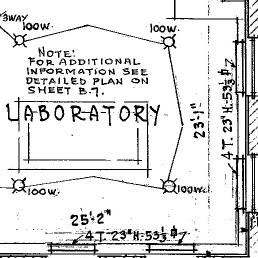 3WAY
100W.
100W.
NOTE:
FOR ADDITIONAL
INFORMATION SEE
DETAILED PLAN ON
SHEET B.7.
LABORATORY
100W.
100W.
25'-2"
23'-1"